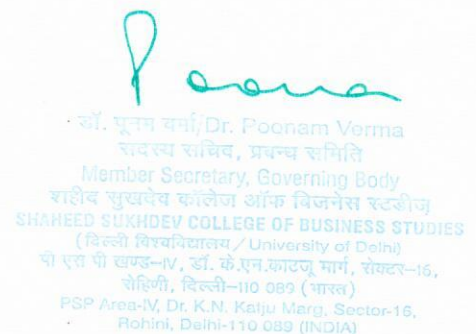 Poonam
डॉ. पूनम वर्मा/Dr. Poonam Verma
सदस्य सचिव, प्रबन्ध समिति
Member Secretary, Governing Body
शहीद सुखदेव कॉलेज ऑफ बिजनेस स्टडीज़
SHAHEED SUKHDEV COLLEGE OF BUSINESS STUDIES
(दिल्ली विश्वविद्यालय / University of Delhi)
पी एस पी खण्ड–IV, डॉ. के.एन.काटजू मार्ग, सेक्टर–16,
रोहिणी, दिल्ली–110 089 (भारत)
PSP Area-IV, Dr. K.N. Katju Marg, Sector-16,
Rohini, Delhi-110 089 (INDIA)